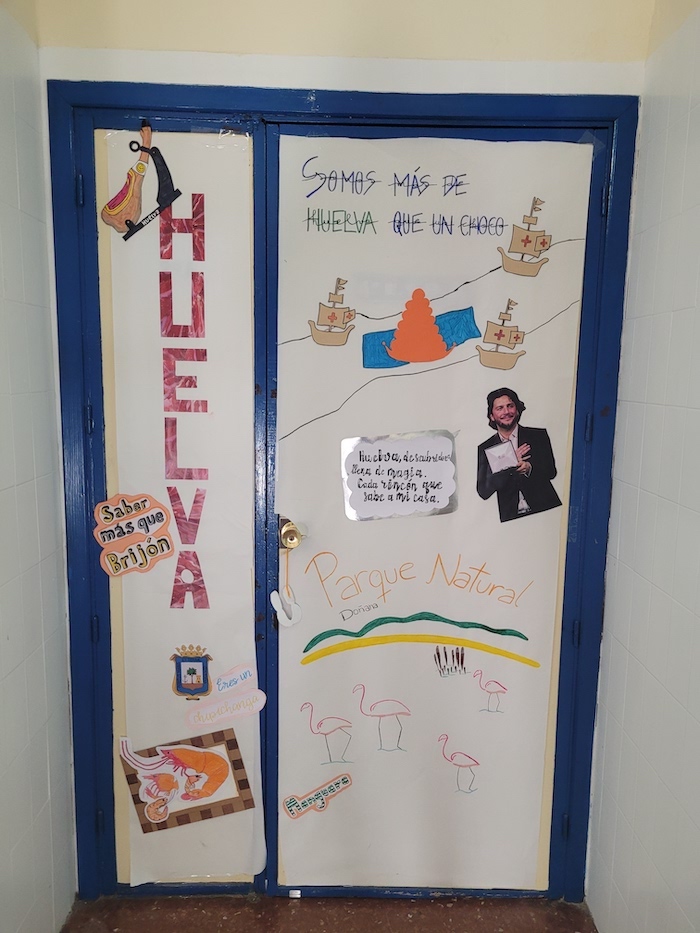 HUELVA
HUELVA
Saber
más que
Brijón
Eres un
chupachanga
SOMOS MÁS DE
HUELVA QUE UN CHOCO
llena de magia.
Cada rincón que
sabe a mi casa.
Parque Natural
Doñana